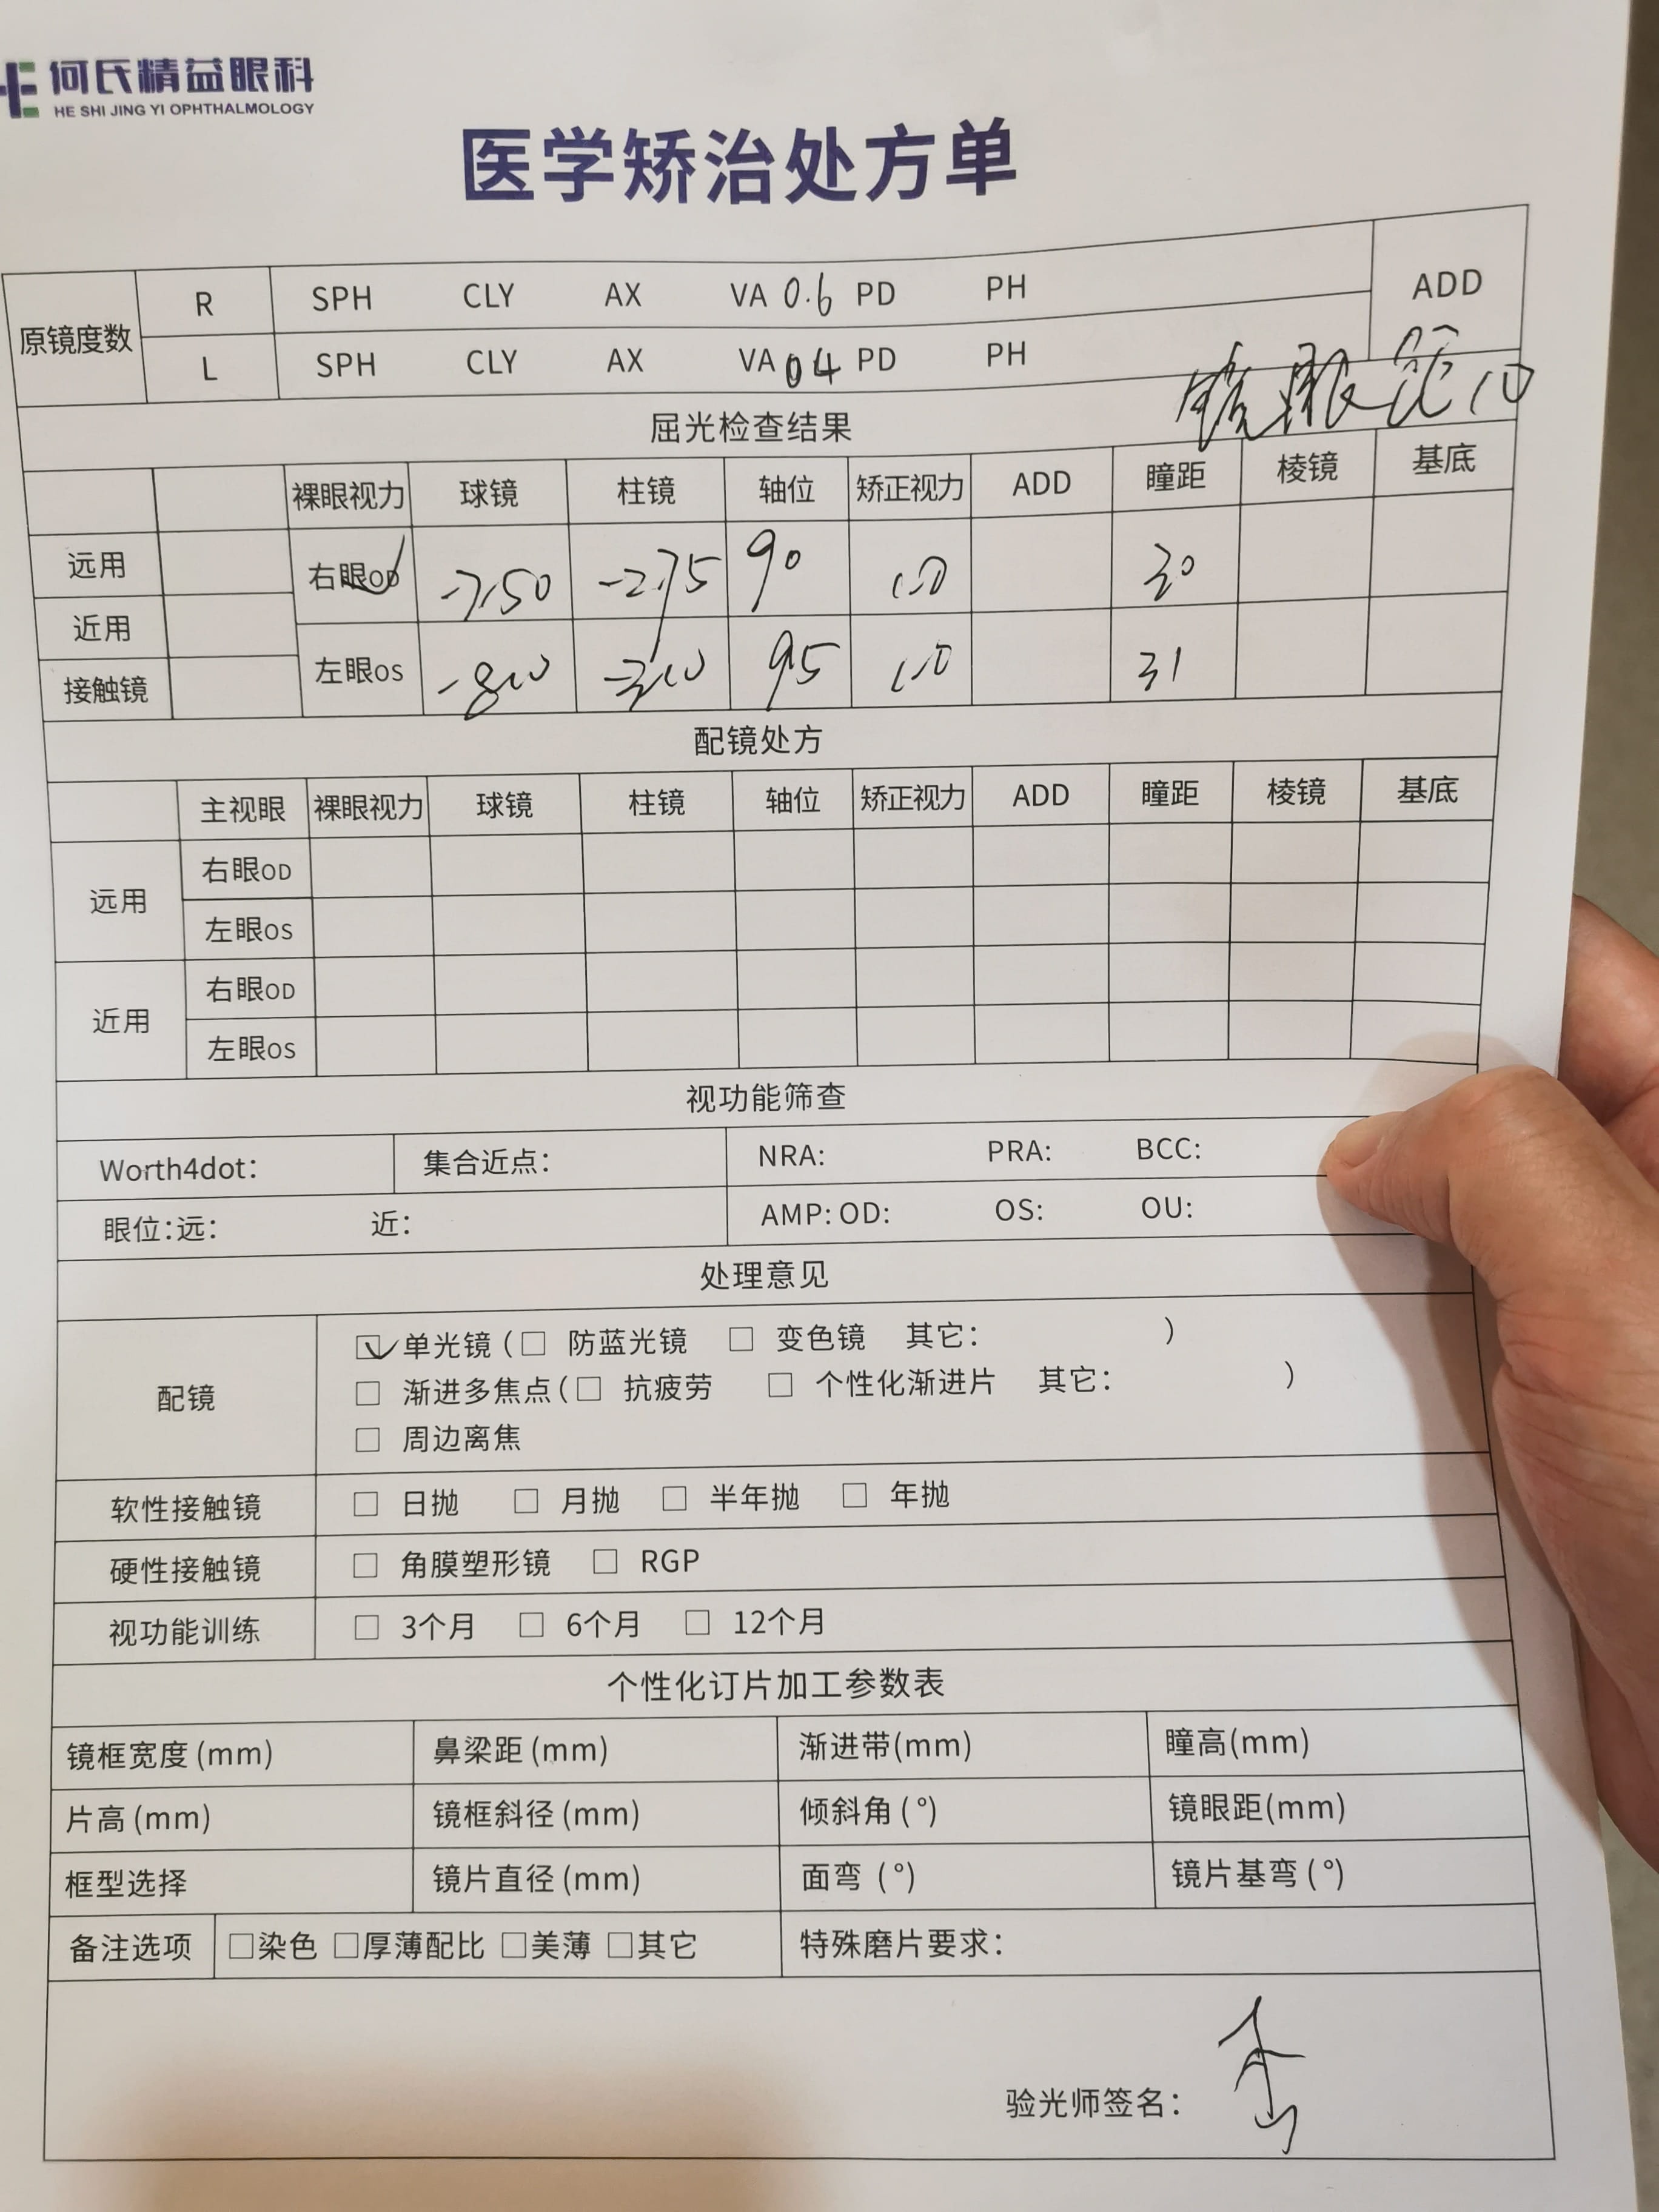 何氏精益眼科
HE SHI JING YI OPHTHALMOLOGY
医学矫治处方单
原镜度数 R SPH CLY AX VA 0.6 PD PH ADD
L SPH CLY AX VA 04 PD PH
镜眼距10
屈光检查结果
裸眼视力 球镜 柱镜 轴位 矫正视力 ADD 瞳距 棱镜 基底
远用 右眼OD -7.50 -2.75 90 1.0 30
近用
接触镜 左眼OS -8.00 -3.00 95 1.0 31
配镜处方
主视眼 裸眼视力 球镜 柱镜 轴位 矫正视力 ADD 瞳距 棱镜 基底
远用 右眼OD
左眼OS
近用 右眼OD
左眼OS
视功能筛查
Worth4dot: 集合近点: NRA: PRA: BCC:
眼位:远: 近: AMP: OD: OS: OU:
处理意见
配镜 ☑ 单光镜 (□ 防蓝光镜 □ 变色镜 其它: )
□ 渐进多焦点 (□ 抗疲劳 □ 个性化渐进片 其它: )
□ 周边离焦
软性接触镜 □ 日抛 □ 月抛 □ 半年抛 □ 年抛
硬性接触镜 □ 角膜塑形镜 □ RGP
视功能训练 □ 3个月 □ 6个月 □ 12个月
个性化订片加工参数表
镜框宽度 (mm) 鼻梁距 (mm) 渐进带(mm) 瞳高(mm)
片高 (mm) 镜框斜径 (mm) 倾斜角 (°) 镜眼距(mm)
框型选择 镜片直径 (mm) 面弯 (°) 镜片基弯 (°)
备注选项 □染色 □厚薄配比 □美薄 □其它 特殊磨片要求:
验光师签名: